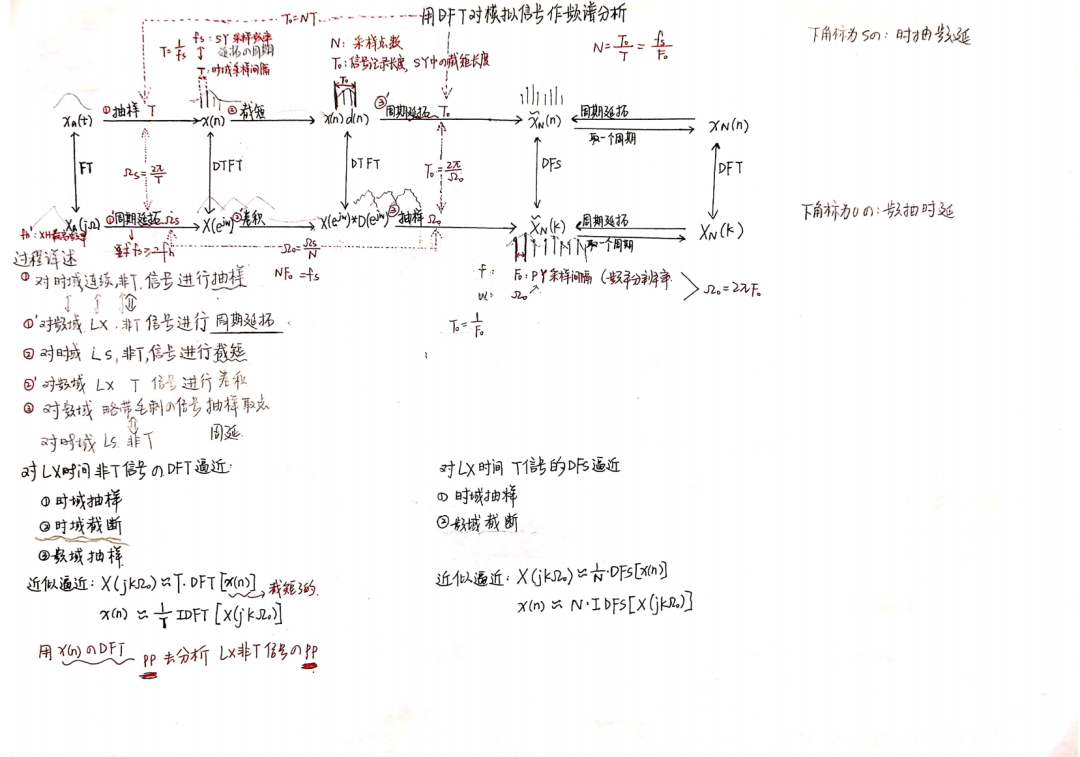 用DFT对模拟信号作频谱分析
T₀=NT
下角标为Sの：时抽频延
T=1/fs
fs：SY采样频率
延拓の周期
T：时域采样间隔
N：采样点数
T₀：信号记录长度，SY中の截短长度
N=T₀/T=fs/F₀
T₀
xₐ(t) ①抽样 T x(n) ②截短 x(n)d(n) ③'周期延拓 T₀ x̃N(n) 周期延拓 取一个周期 xN(n)
FT Ωs=2π/T DTFT DTFT T₀=2π/Ω₀ DFS DFT
Xₐ(jΩ) ①'周期延拓 Ωs X(e^jω) ②'卷积 X(e^jω)*D(e^jω) ③抽样 Ω₀ X̃N(k) 周期延拓 取一个周期 XN(k)
下角标为0の：频抽时延
要求fs≥2fh
Ω₀=Ωs/N
NF₀=fs
f： F₀：PY采样间隔（频率分辨率
w： Ω₀
Ω₀=2πF₀
T₀=1/F₀
过程详述
①对时域，连续，非T，信号进行抽样
①'对频域 LX，非T信号进行 周期延拓
②对时域 LS，非T，信号进行截短
②'对频域 LX T 信号进行卷积
③对频域 略带毛刺の信号抽样取点
对时域 LS 非T 周延
对LX时间非T信号のDFT逼近：
①时域抽样
②时域截断
③频域抽样
近似逼近：X(jkΩ₀)≈T·DFT[x(n)] 截短了的
x(n)≈1/T IDFT[X(jkΩ₀)]
用x(n)のDFT PP去分析 LX非T信号のPP
对LX时间 T信号的DFS逼近
①时域抽样
②频域截断
近似逼近：X(jkΩ₀)≈1/N·DFS[x(n)]
x(n)≈N·IDFS[X(jkΩ₀)]